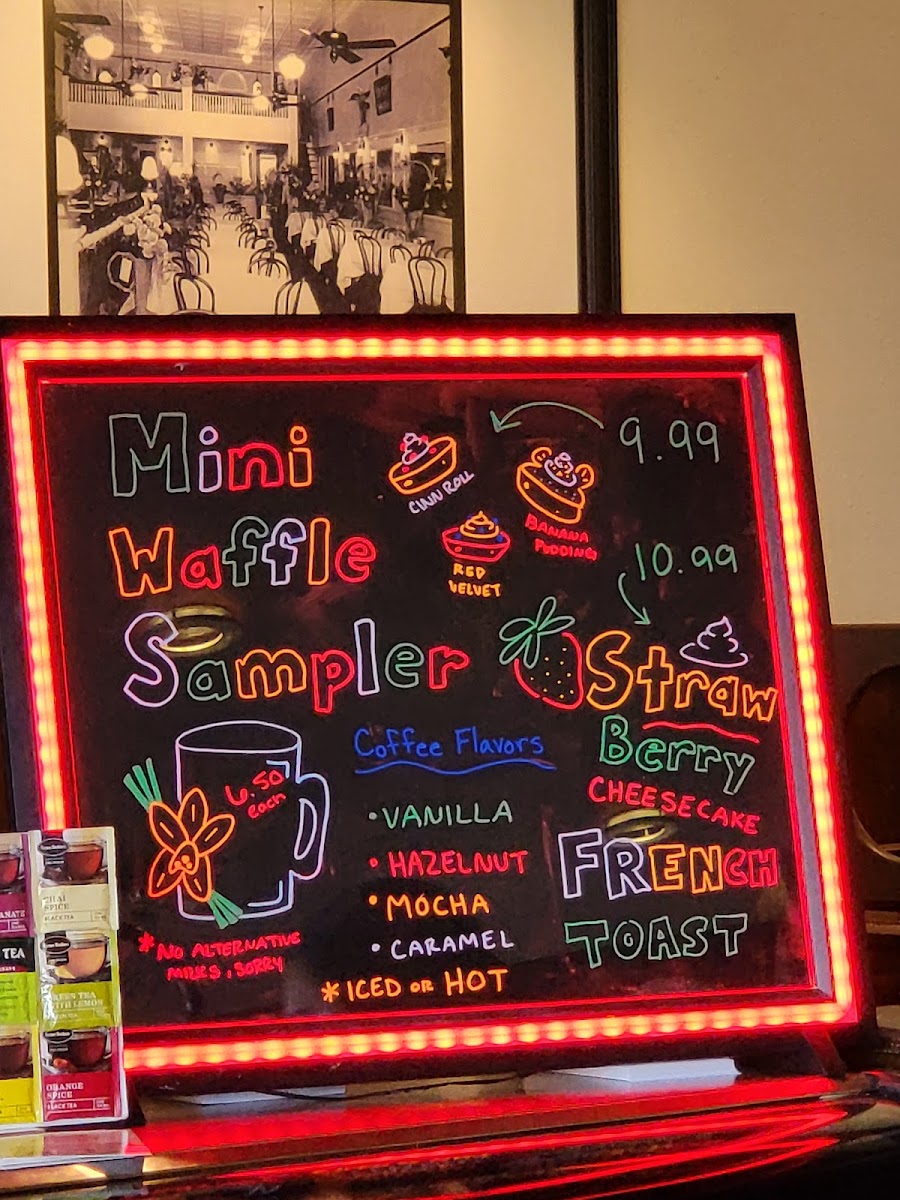 Mini
Waffle
Sampler
9.99
CINN ROLL
BANANA
PUDDING
RED
VELVET
10.99
Straw
Berry
CHEESECAKE
FRENCH
TOAST
6.50
each
*NO ALTERNATIVE
MILKS, SORRY
Coffee Flavors
• VANILLA
• HAZELNUT
• MOCHA
• CARAMEL
* ICED OR HOT
CHAI
SPICE
BLACK TEA
TEA
GREEN TEA
WITH LEMON
ORANGE
SPICE
BLACK TEA